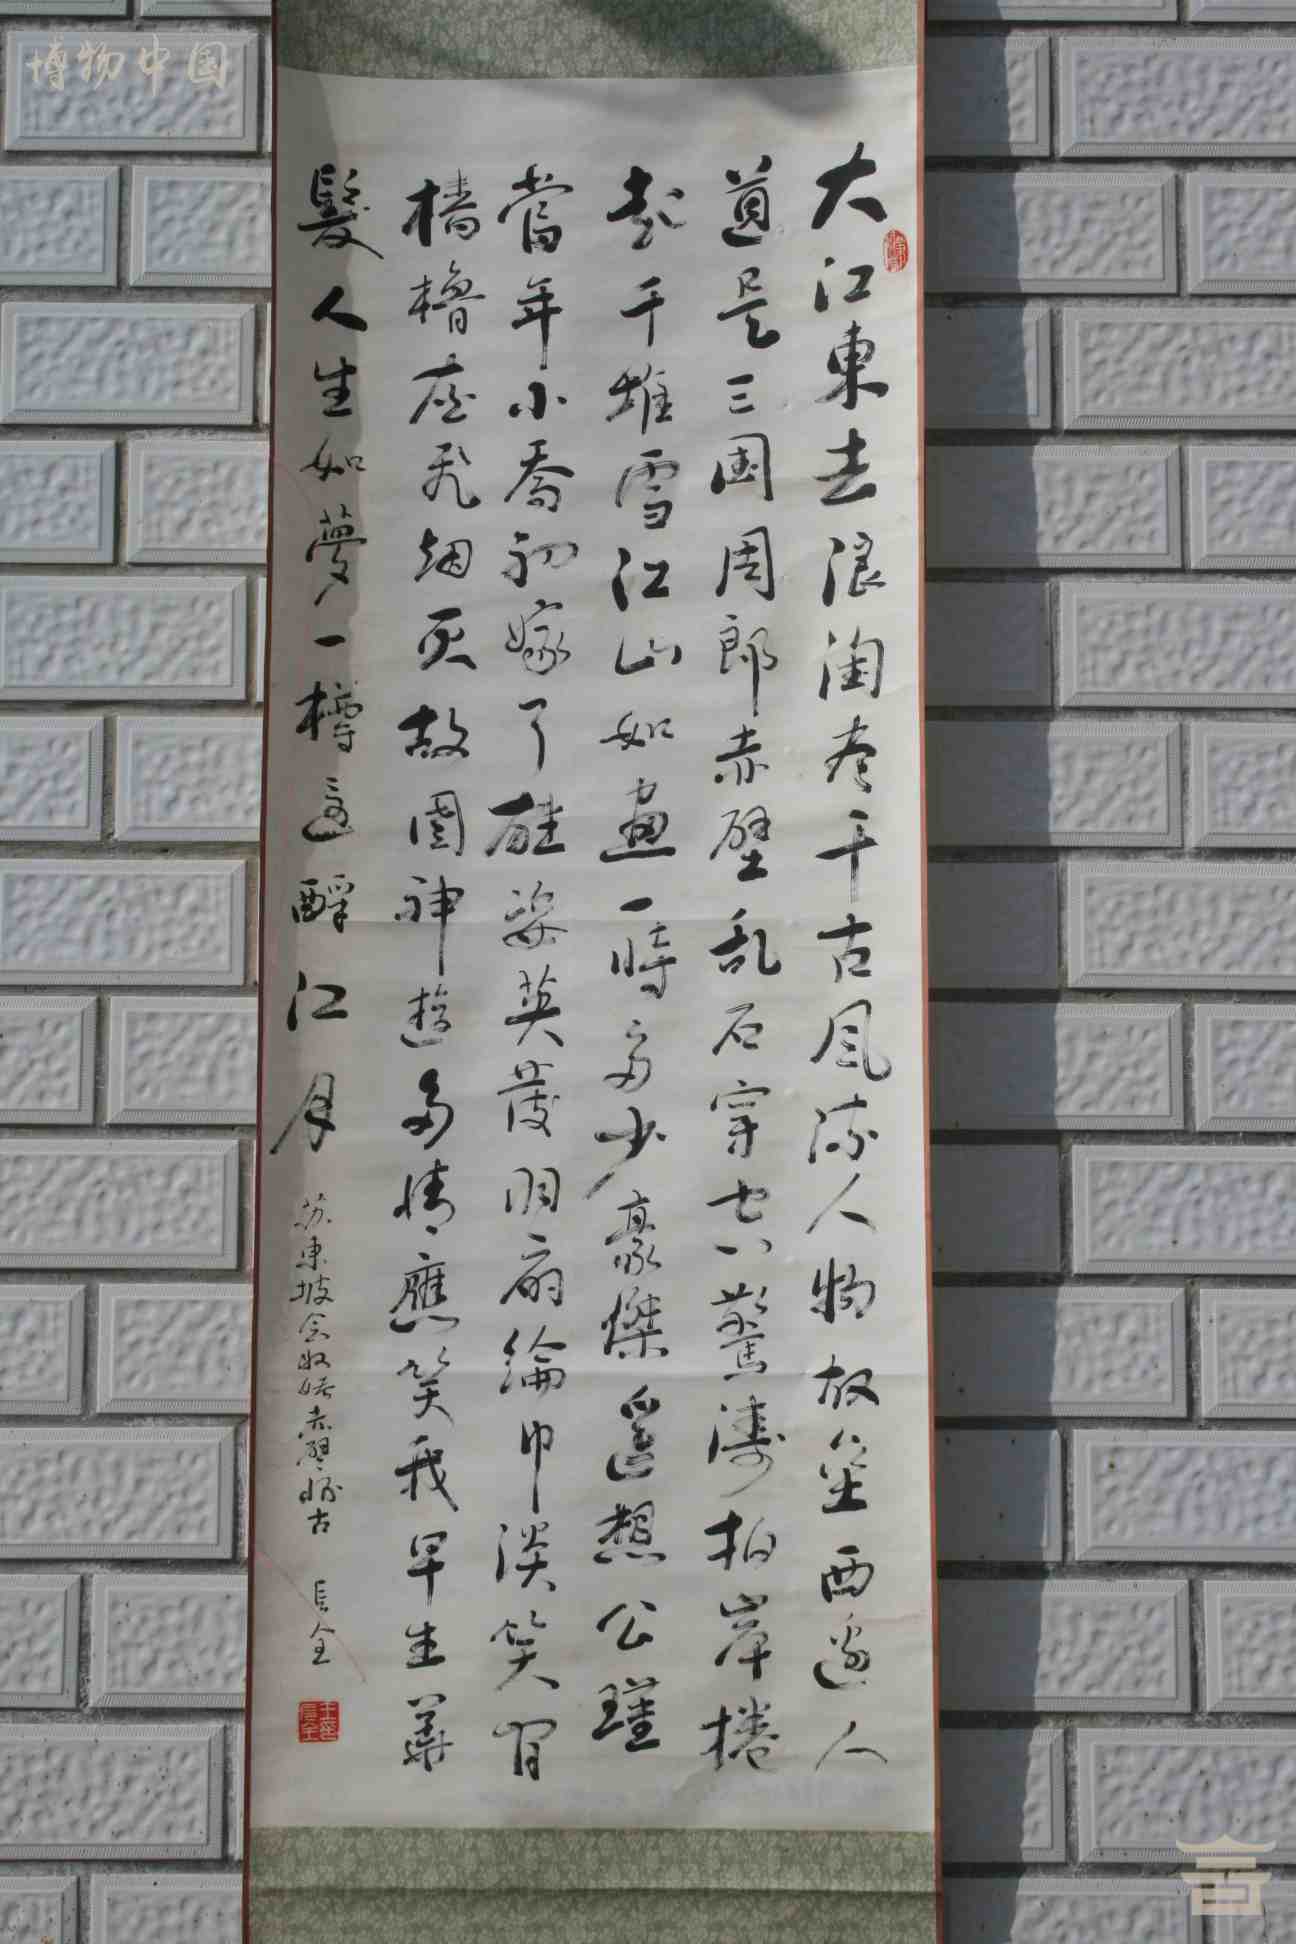 博物中国
大江東去浪淘尽千古风流人物故垒西邊人
道是三国周郎赤壁乱石穿空驚濤拍岸捲
起千堆雪江山如畫一時多少豪傑遥想公瑾
當年小喬初嫁了雄姿英發羽扇綸巾淡笑间
檣櫓飛烟灭故國神遊多情應笑我早生華
髮人生如夢一樽還酹江月
苏東坡念奴娇赤壁怀古 长全